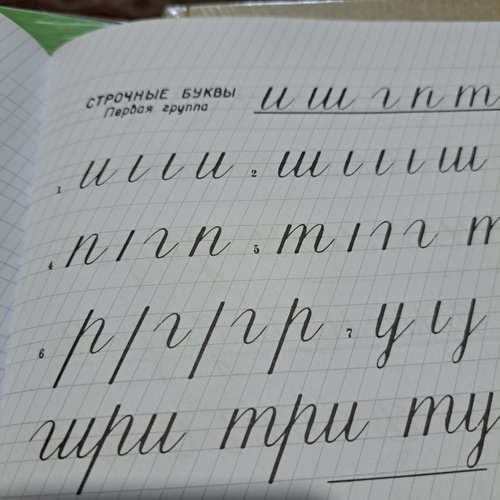 СТРОЧНЫЕ БУКВЫ
Первая группа
и ш г п т
1 и ι ι ι и 2 ш ι ι ι ι ш
4 п ı г п 5 т ı п г т
6 р / г / г р 7 у ι у
шри три ту